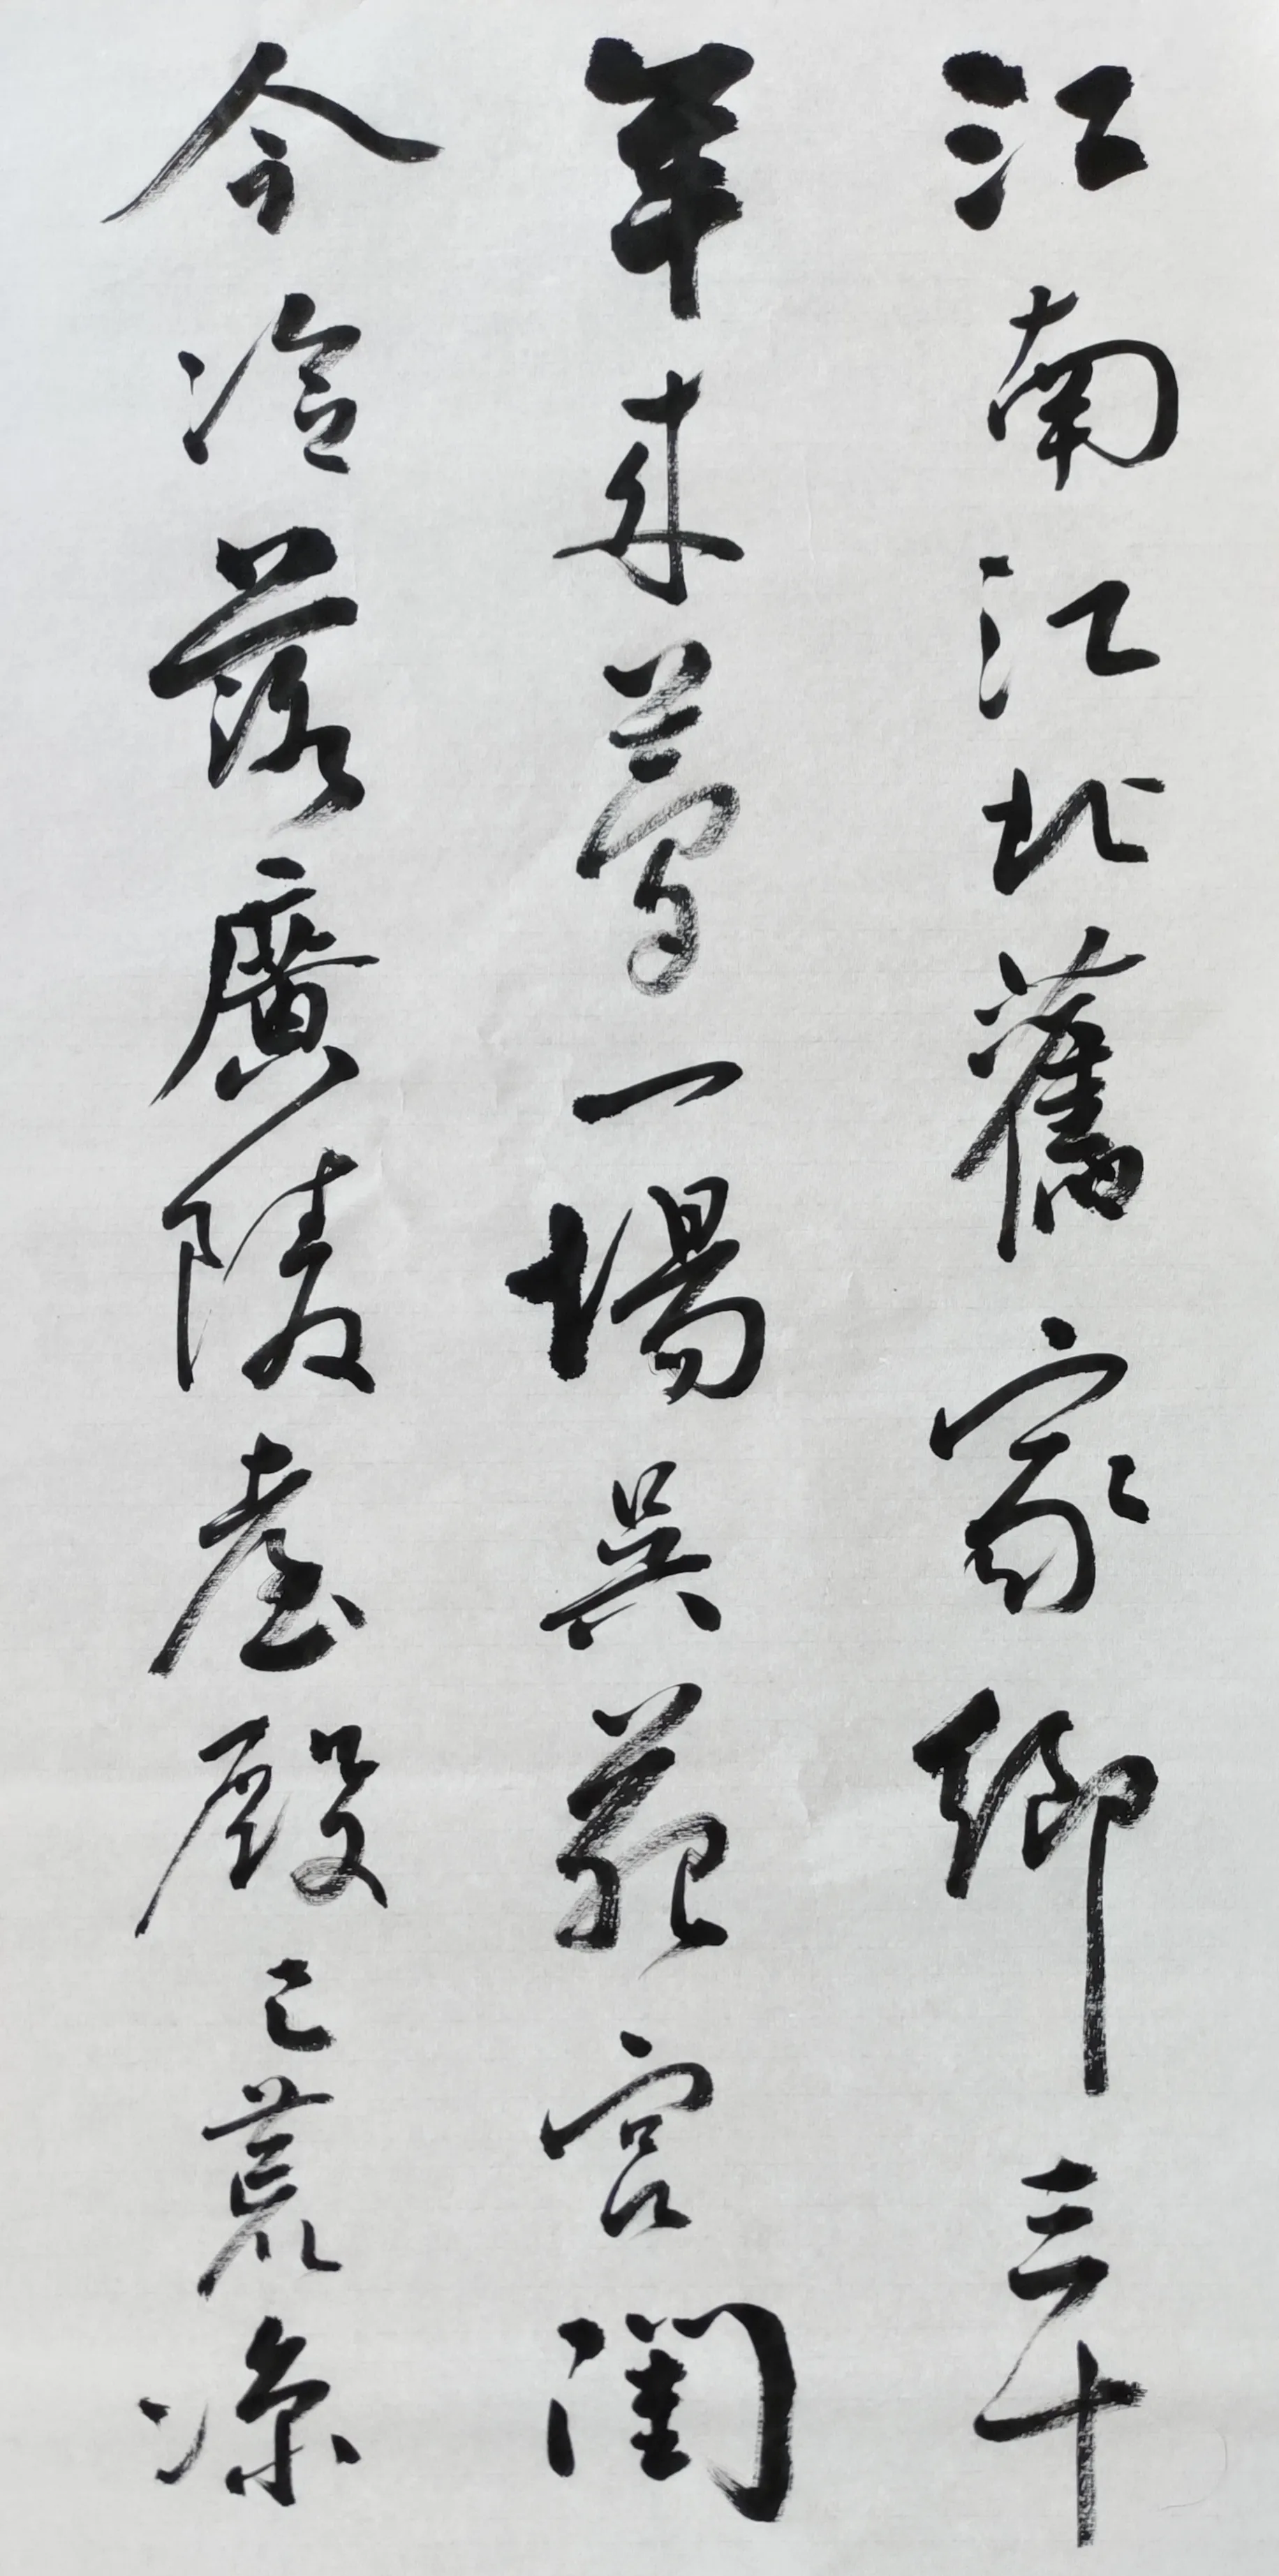 江南江北舊家鄉三十
年來夢一場吳苑宮闈
今冷落廣陵臺殿已荒涼